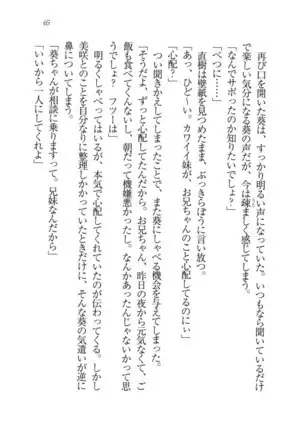 65
再び口を開いた葵は、すっかり明るい声になっていた。いつもなら聞いているだけ
で楽しい気分になる葵の声だが、今は疎ましく感じてしまう。
「なんでサボったのか知りたいでしょ？」
「べつに……」
直樹は壁紙を見つめたまま、ぶっきらぼうに言い放つ。
「あっ、ひど〜い。カワイイ妹が、お兄ちゃんのこと心配してるのにぃ」
「心配？」
つい聞きかえしてしまった。また葵にしゃべる機会を与えてしまった。
「そうだよ、ずっと心配してたんだから。お兄ちゃん、昨日の夜から元気なくて、ご
飯も食べてくんないし、朝だって機嫌悪かったし。なんかあったんじゃないかって思
うでしょ？　フツーは」
明るくしゃべってはいるが、本気で心配してくれていたのが伝わってくる。しかし
美咲とのことを自分なりに整理しかかっていたときだけに、そんな葵の気遣いが逆に
鼻についてしまう。
「葵ちゃんが相談に乗りますって。兄妹なんだから」
「いいから一人にしてくれよ」